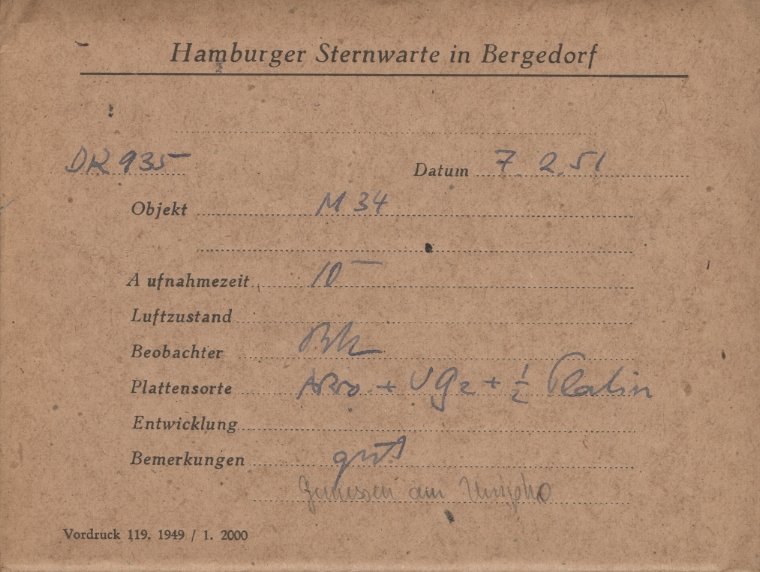 Hamburger Sternwarte in Bergedorf
DR 935 Datum 7. 2. 51
Objekt M 34
Aufnahmezeit 10
Luftzustand
Beobachter
Plattensorte + UG2 + 1/2 Platin
Entwicklung
Bemerkungen gut
Gemessen am
Vordruck 119. 1949 / 1. 2000